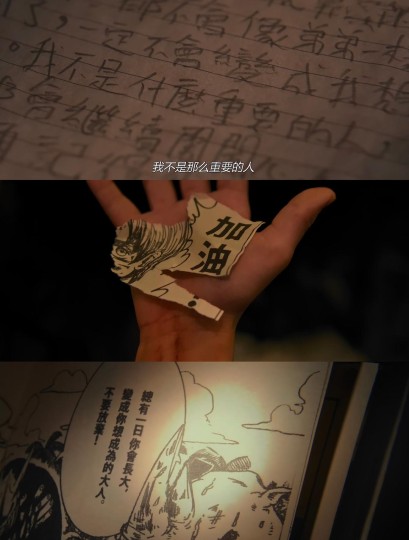 都不會像弟弟一
，一定不會變成我想
。我不是什麼重要的人，
會繼續
我不是那么重要的人
加油
總有一日你會長大，
變成你想成為的大人。
不要放棄！